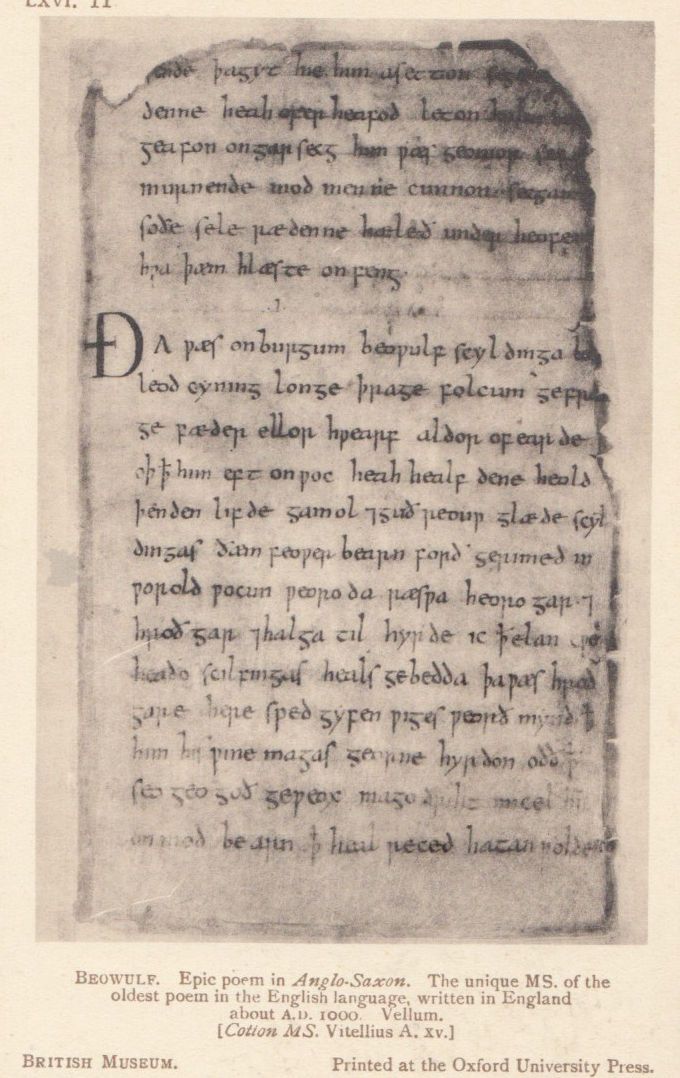 LXVI. 11
ende þagyt hie him asetton
denne heah ofer heafod leton
geafon ongarsecg him ƿæs geomor
murnende mod men ne cunnon secgan
soðe sele rædenne hæleð under heofe
hƿa þæm hlæste onfeng.
.I.
Ða ƿæs onburgum beoƿulf scyldinga
leod cyning longe þrage folcum gefræ
ge fæder ellor hƿearf aldor ofearde
oþ ꝥ him eft onƿoc heah healfdene heold
þenden lifde gamol ⁊guðreouƿ glæde scyl
dingas ðæm feoƿer bearn forð gerimed in
ƿorold ƿocun ƿeoroda ræsƿa heorogar ⁊
hroðgar ⁊halga til hyrde ic ꝥ elan cƿen
heaðo scilfingas healsgebedda þa ƿæs hroð
gare here sped gyfen ƿiges ƿeorð mynd ꝥ
him his ƿine magas georne hyrdon oðð ꝥ
seo geogoð geƿeox mago driht micel him
onmod bearn ꝥ heal reced hatan ƿolde
BEOWULF. Epic poem in Anglo-Saxon. The unique MS. of the
oldest poem in the English language, written in England
about A.D. 1000. Vellum.
[Cotton MS. Vitellius A. XV.]
BRITISH MUSEUM. Printed at the Oxford University Press.